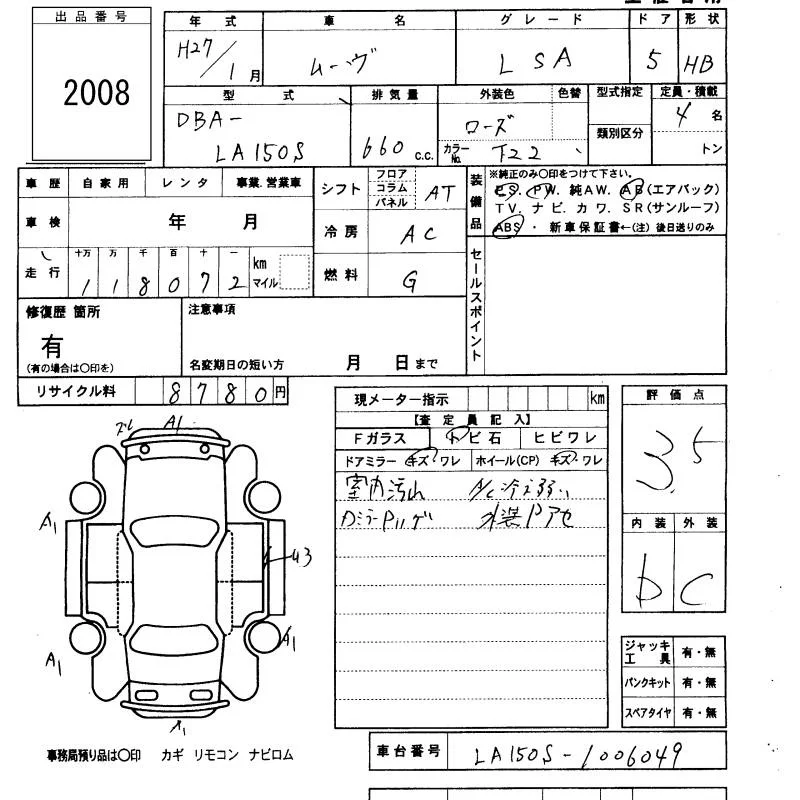 出品番号
2008
年式
H27/1月
車名
ムーヴ
グレード
L SA
ドア
5
形状
HB
型式
DBA-
LA150S
排気量
660 c.c.
外装色
ローズ
色替
カラーNo. T22
型式指定
類別区分
定員・積載
4名
トン
車歴 自家用 レンタ 事業.営業車
車検 年 月
走行
十万 万 千 百 十 一
118072
km
マイル
シフト
フロア
コラム
パネル
AT
冷房 AC
燃料 G
装備品
※純正のみ○印をつけて下さい。
P.S. P.W. 純A.W. A.B(エアバック)
T.V. ナビ. カワ. S.R(サンルーフ)
ABS ・ 新車保証書←(注) 後日送りのみ
セールスポイント
修復歴 箇所
有
(有の場合は○印を)
注意事項
名変期日の短い方 月 日まで
リサイクル料 8780円
現メーター指示 km
【査定員記入】
Fガラス トビ石 ヒビワレ
ドアミラー キズ・ワレ ホイール(CP) キズ・ワレ
室内汚れ A/C冷え弱い
評価点
3.5
内装 外装
D C
A1
A1
A1
A1
A1
U3
ジャッキ
工具 有・無
パンクキット 有・無
スペアタイヤ 有・無
事務局預り品は○印 カギ リモコン ナビロム
車台番号 LA150S-1006049